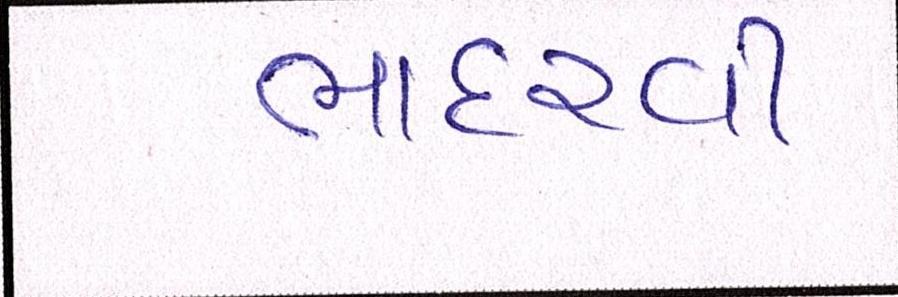 ભાદરવી